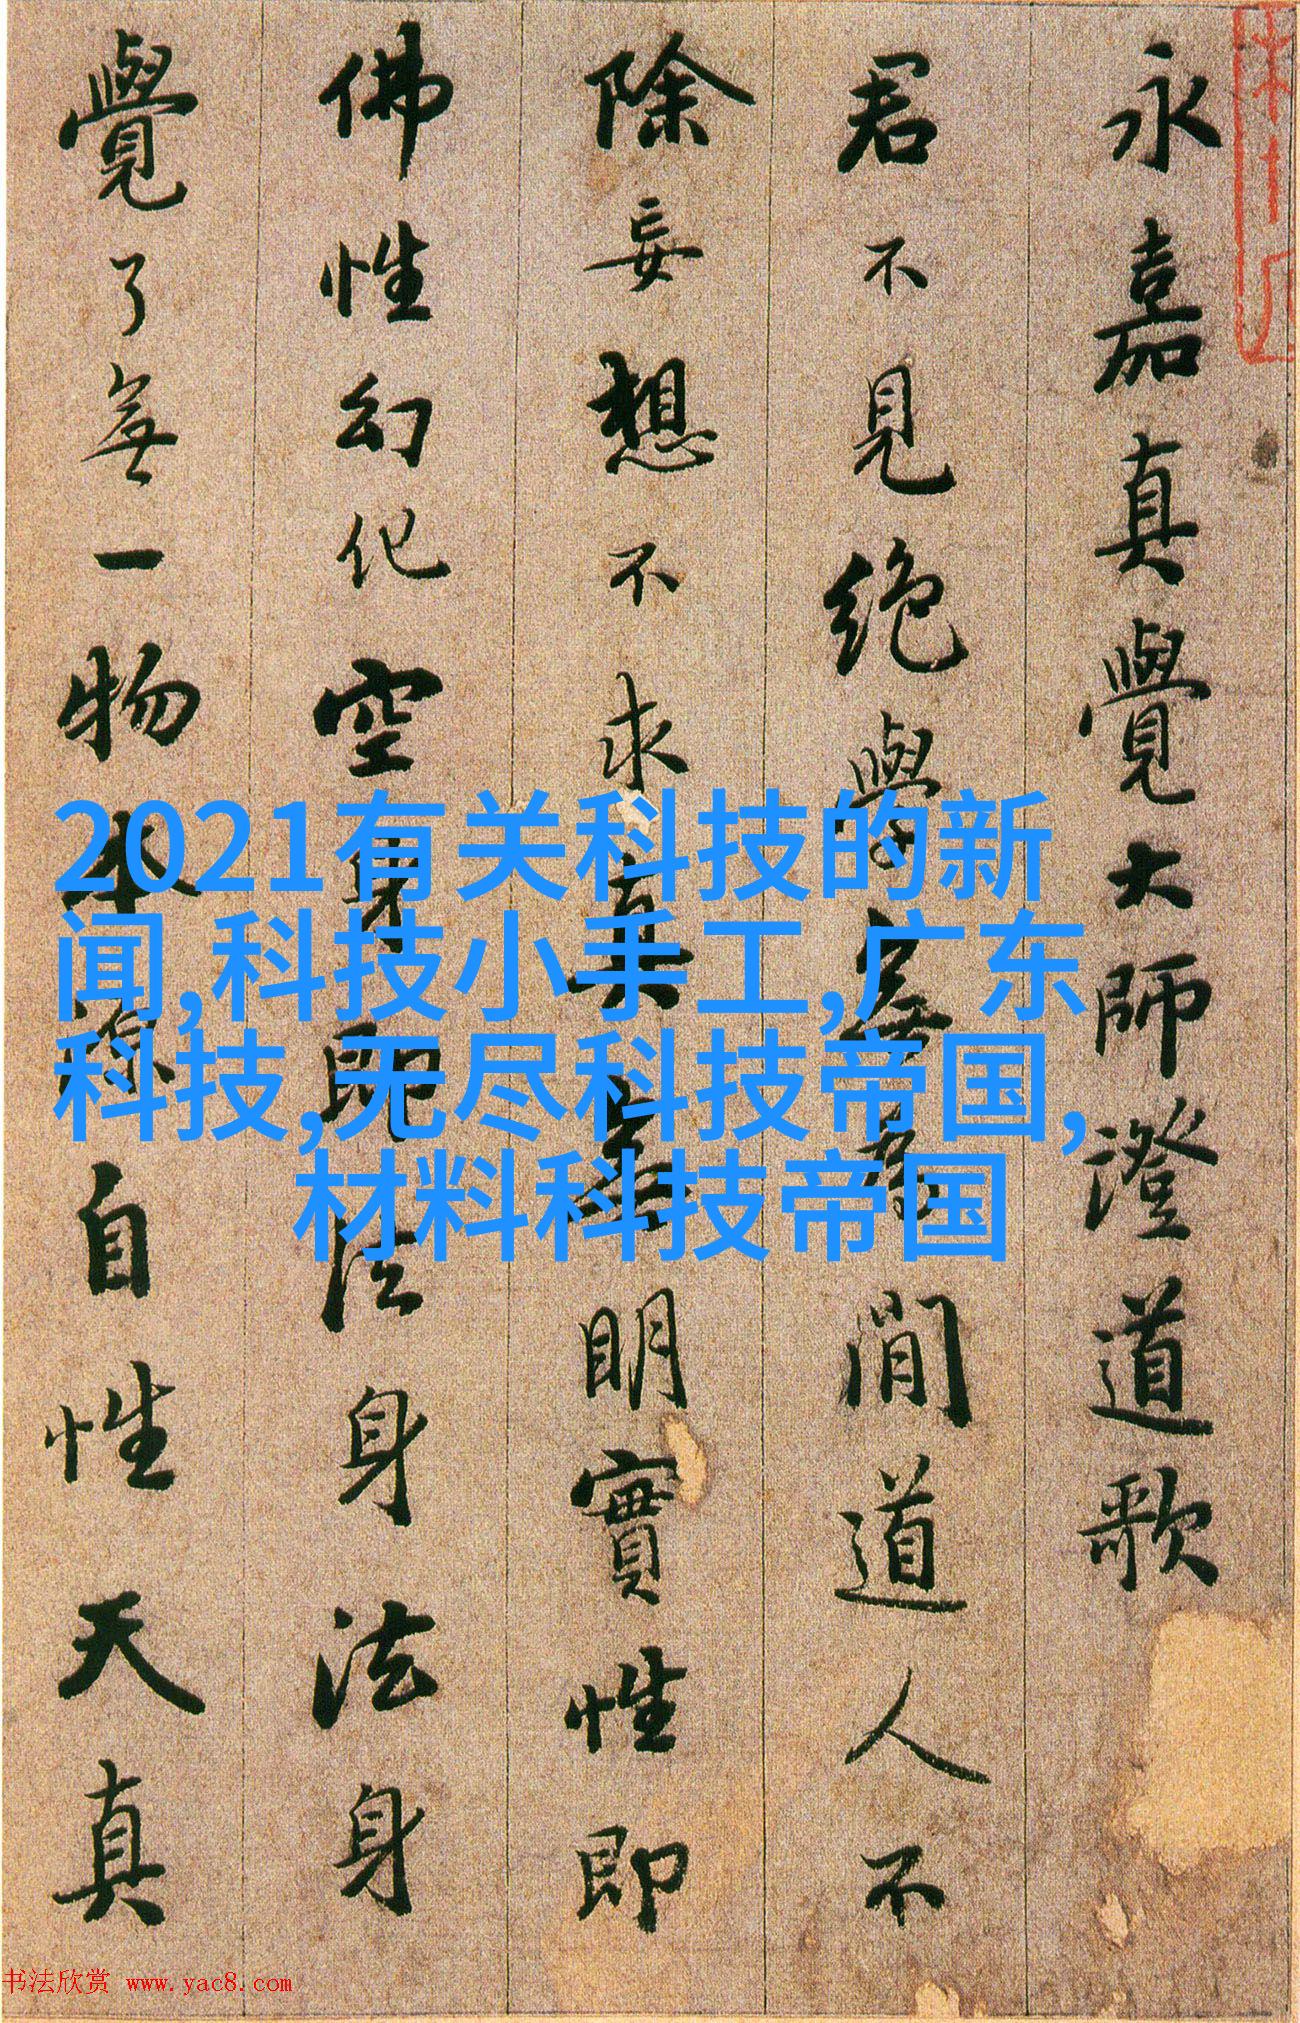 永嘉真覺大師澄道歌
君不見絕學無為閒道人不
除妄想不求真無明實性即
佛性幻化空身即法身法身
覺了無一物本源自性天真
2021有关科技的新
闻,科技小手工,广东
科技,无尽科技帝国,
材料科技帝国
书法欣赏 www.yac8.com